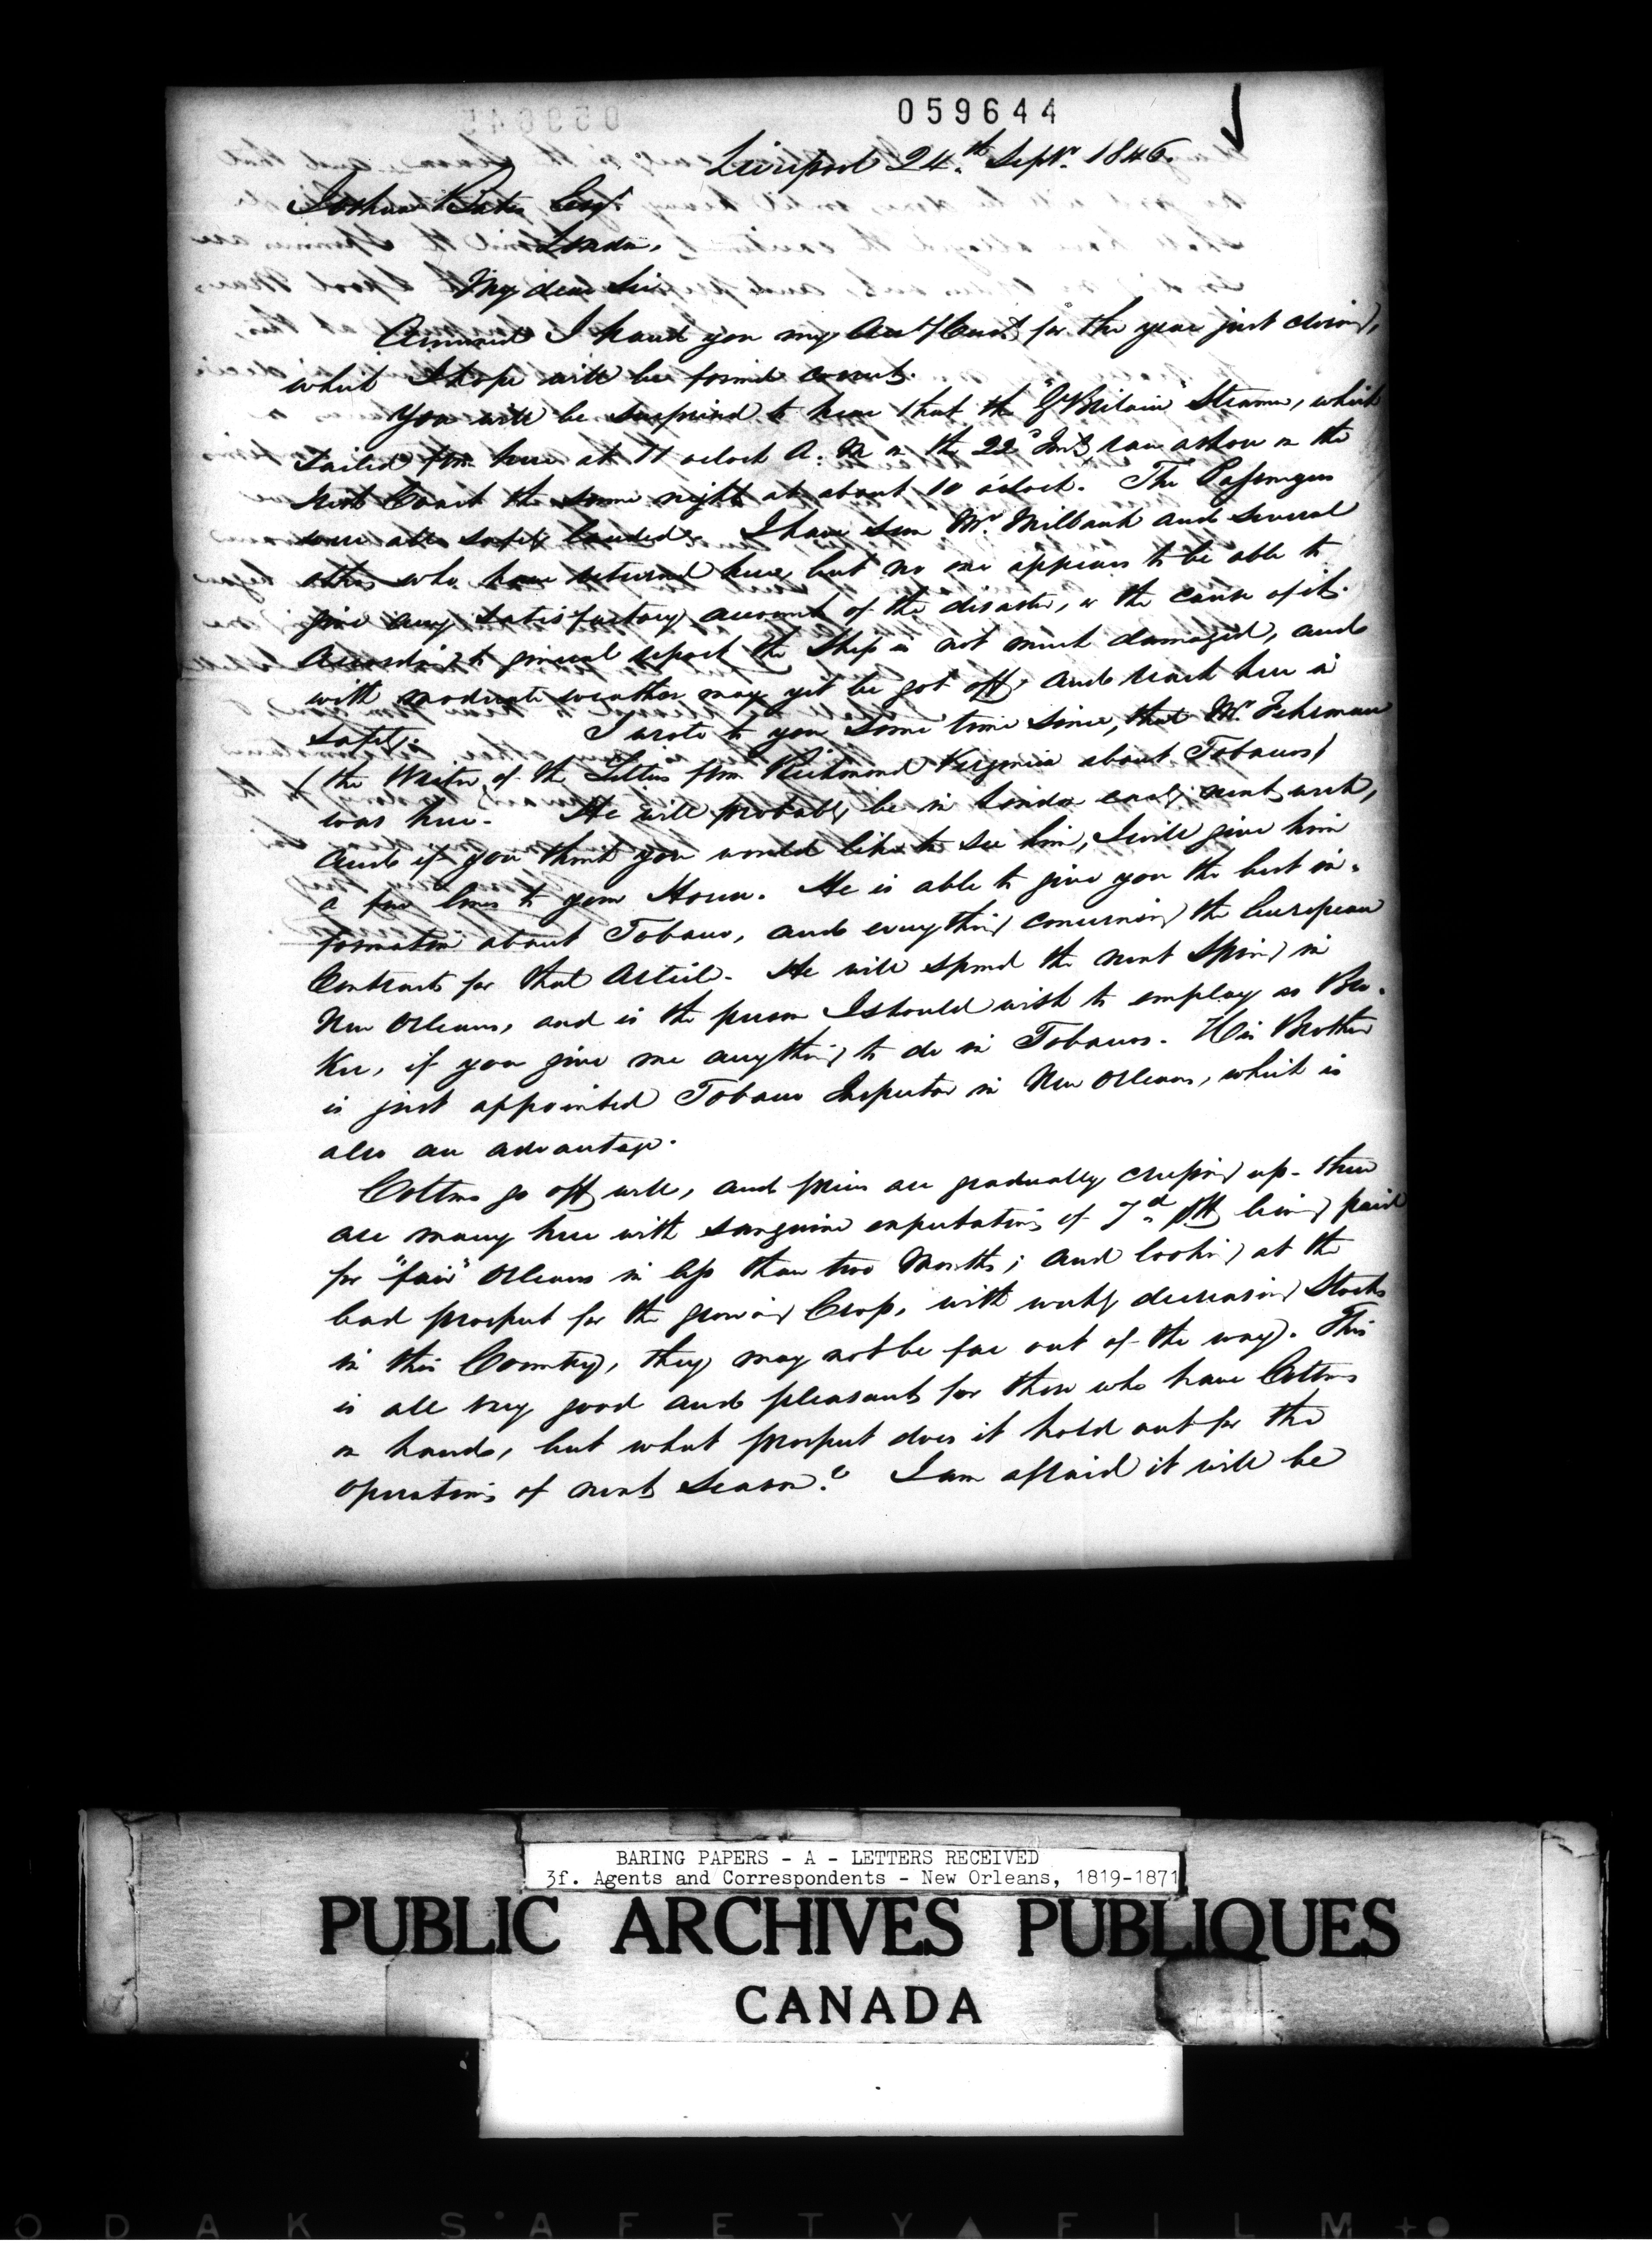 059644
Liverpool 24th Septr. 1846.
Joshua Bates Esqr.
London,
My dear Sir
Annexed I hand you my Acct Currt for the year just closing,
which I hope will be found correct.
You will be surprised to hear that the "Gt Britain" Steamer, which
sailed from here at 11 oclock A. M on the 22d Inst, ran ashore on the
Irish Coast the same night at about 10 oclock. The Passengers
were all safely landed. I have seen Mr. Milbank and several
others who have returned here, but no one appears to be able to
give any satisfactory account of the disaster, or the cause of it.
According to general report the Ship is not much damaged, and
with moderate weather may yet be got off, and reach here in
safety. I wrote to you some time since, that Mr. Fehrman
(the Writer of the Letters from Richmond Virginia about Tobacco)
was here. He will probably be in London early next week,
and if you think you would like to see him, I will give him
a few lines to your House. He is able to give you the best in-
formation about Tobacco, and everything concerning the European
Contracts for that Article. He will spend the next Spring in
New Orleans, and is the person I should wish to employ as Bro-
ker, if you give me anything to do in Tobacco. His Brother
is just appointed Tobacco Inspector in New Orleans, which is
also an advantage.
Cottons go off well, and prices are gradually creeping up - there
are many here with sanguine expectations of 7d. being paid
for "fair" Orleans in less than two Months; and looking at the
bad prospect for the growing Crop, with weekly decreasing Stocks
in this Country, they may not be far out of the way. This
is all very good and pleasant for those who have Cottons
on hand, but what prospect does it hold out for the
operations of next Season? I am afraid it will be
BARING PAPERS - A - LETTERS RECEIVED
3f. Agents and Correspondents - New Orleans, 1819-1871
PUBLIC ARCHIVES PUBLIQUES
CANADA
ODAK S'AFETY▲FILM